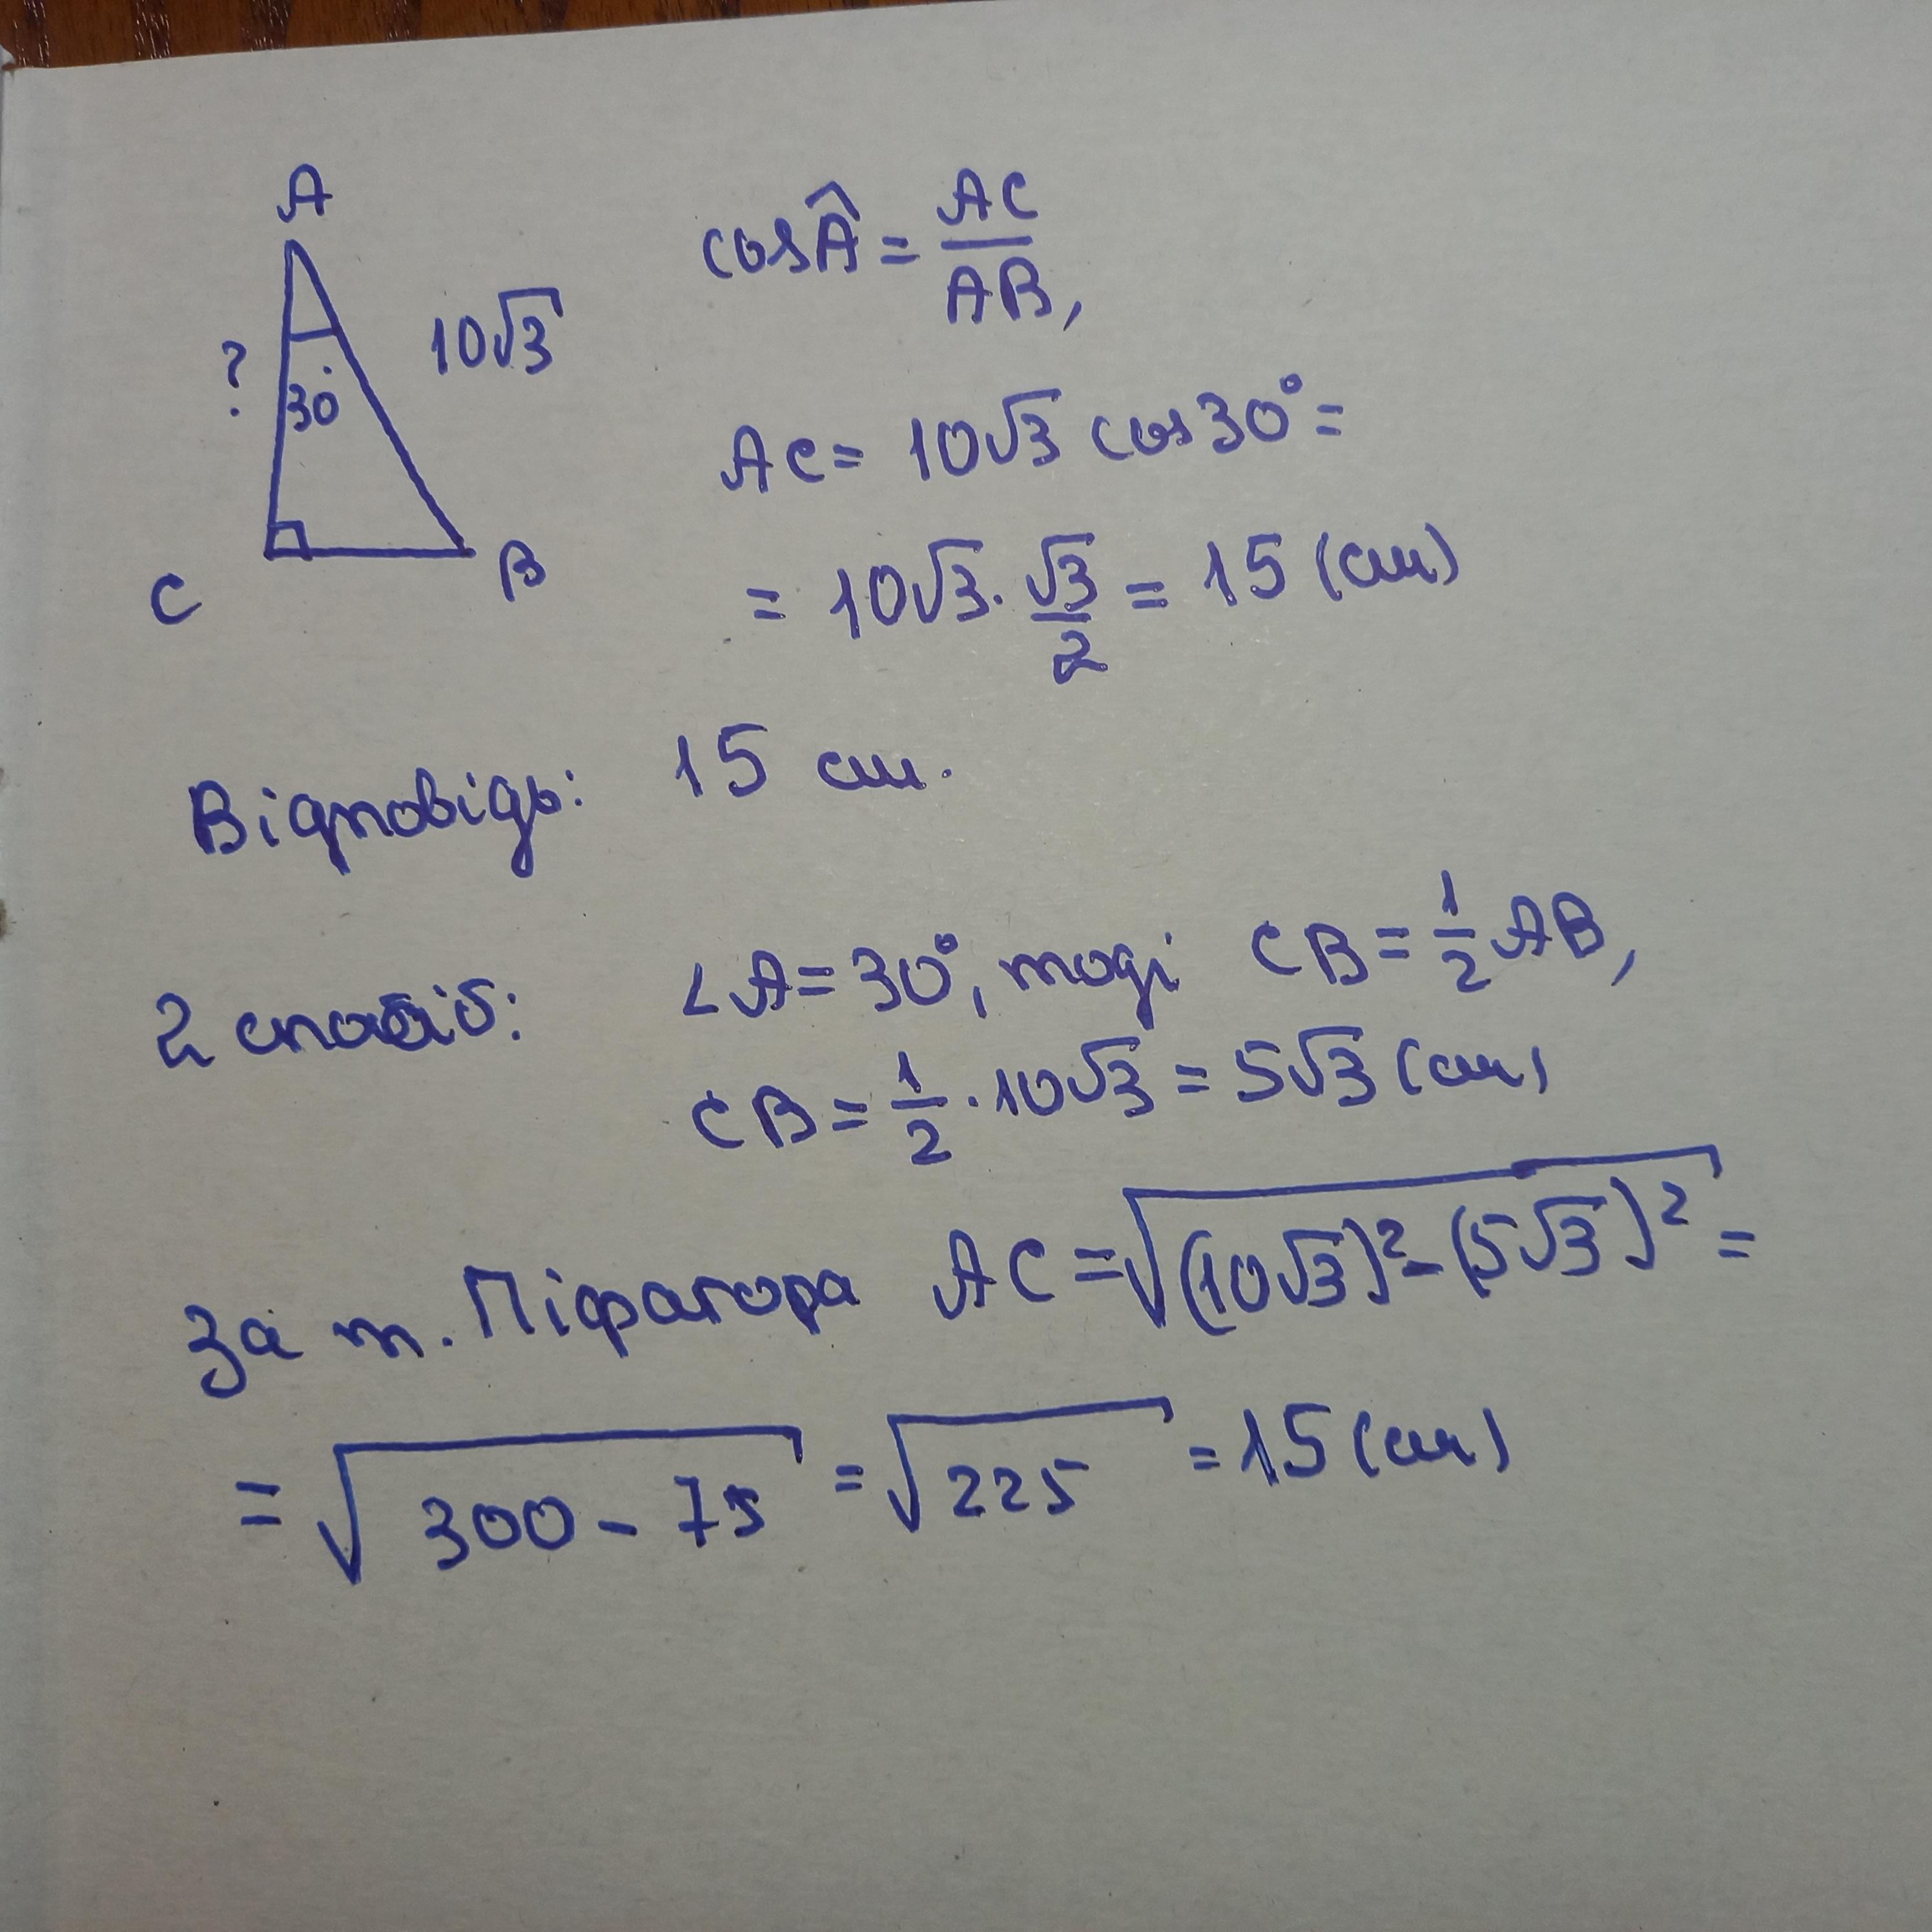 A
10√3
?
30°
C
B
cosÂ = AC/AB,
AC = 10√3 cos30° =
= 10√3 · √3/2 = 15 (см)
Відповідь: 15 см.
2 спосіб: ∠A = 30°, тоді CB = 1/2 AB,
CB = 1/2 · 10√3 = 5√3 (см)
За т. Піфагора AC = √((10√3)² - (5√3)²) =
= √(300 - 75) = √225 = 15 (см)